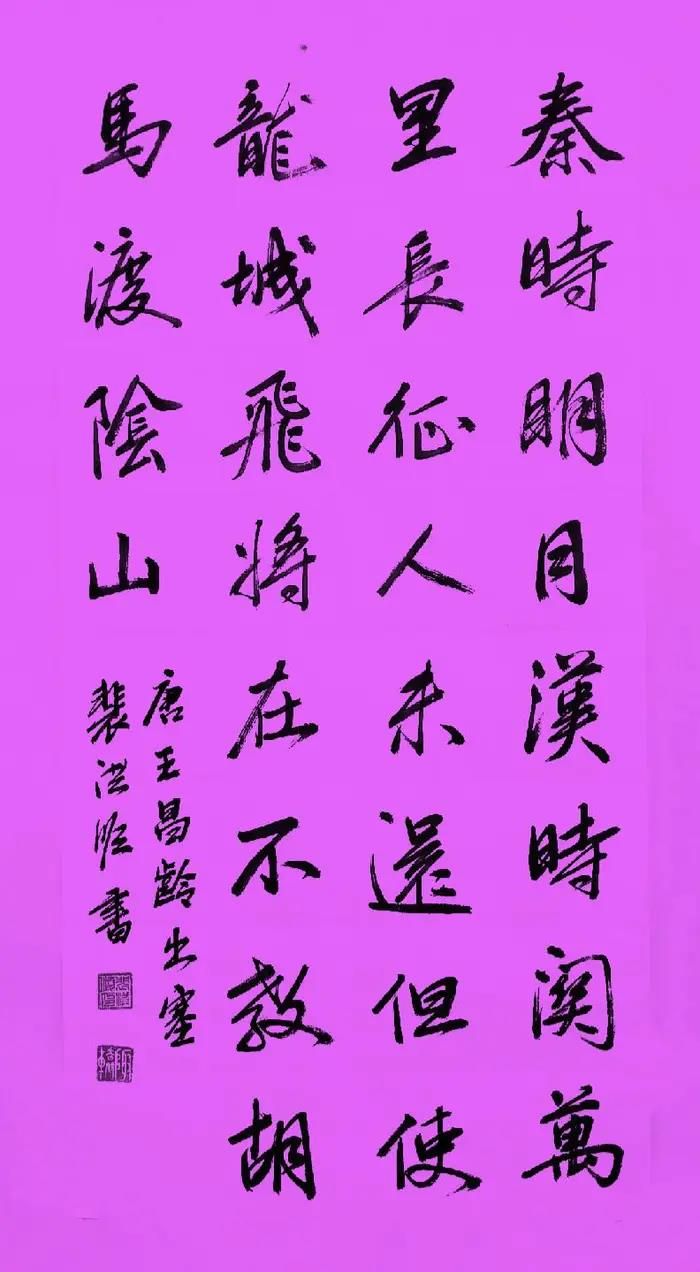 秦時明月漢時関萬
里長征人未還但使
龍城飛將在不教胡
馬渡陰山
唐王昌齡出塞
裴洪順書